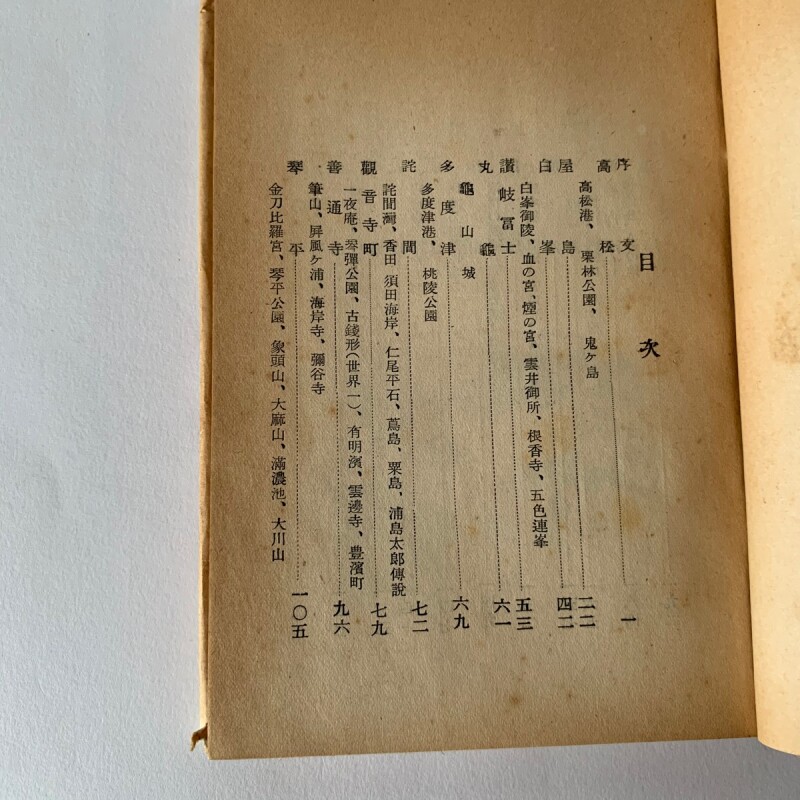 目次
序文
高松……一
高松港、栗林公園、鬼ヶ島
屋島……二二
白峯……四二
白峯御陵、血の宮、煙の宮、雲井御所、根香寺、五色連峯
讃岐富士……五三
丸龜……六一
龜山城
多度津……六九
多度津港、桃陵公園
詫間……七二
詫間灣、香田 須田海岸、仁尾平石、蔦島、粟島、浦島太郎傳說
觀音寺町……七九
一夜庵、琴彈公園、古錢形(世界一)、有明濱、雲邊寺、豊濱町
善通寺……九六
筆山、屛風ケ浦、海岸寺、彌谷寺
琴平……一〇五
金刀比羅宮、琴平公園、象頭山、大麻山、滿濃池、大川山